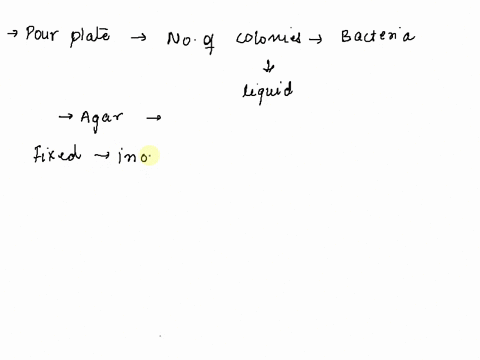 → Pour plate → No. of colonies → Bacteria
↓
liquid
→ Agar →
Fixed → ino.